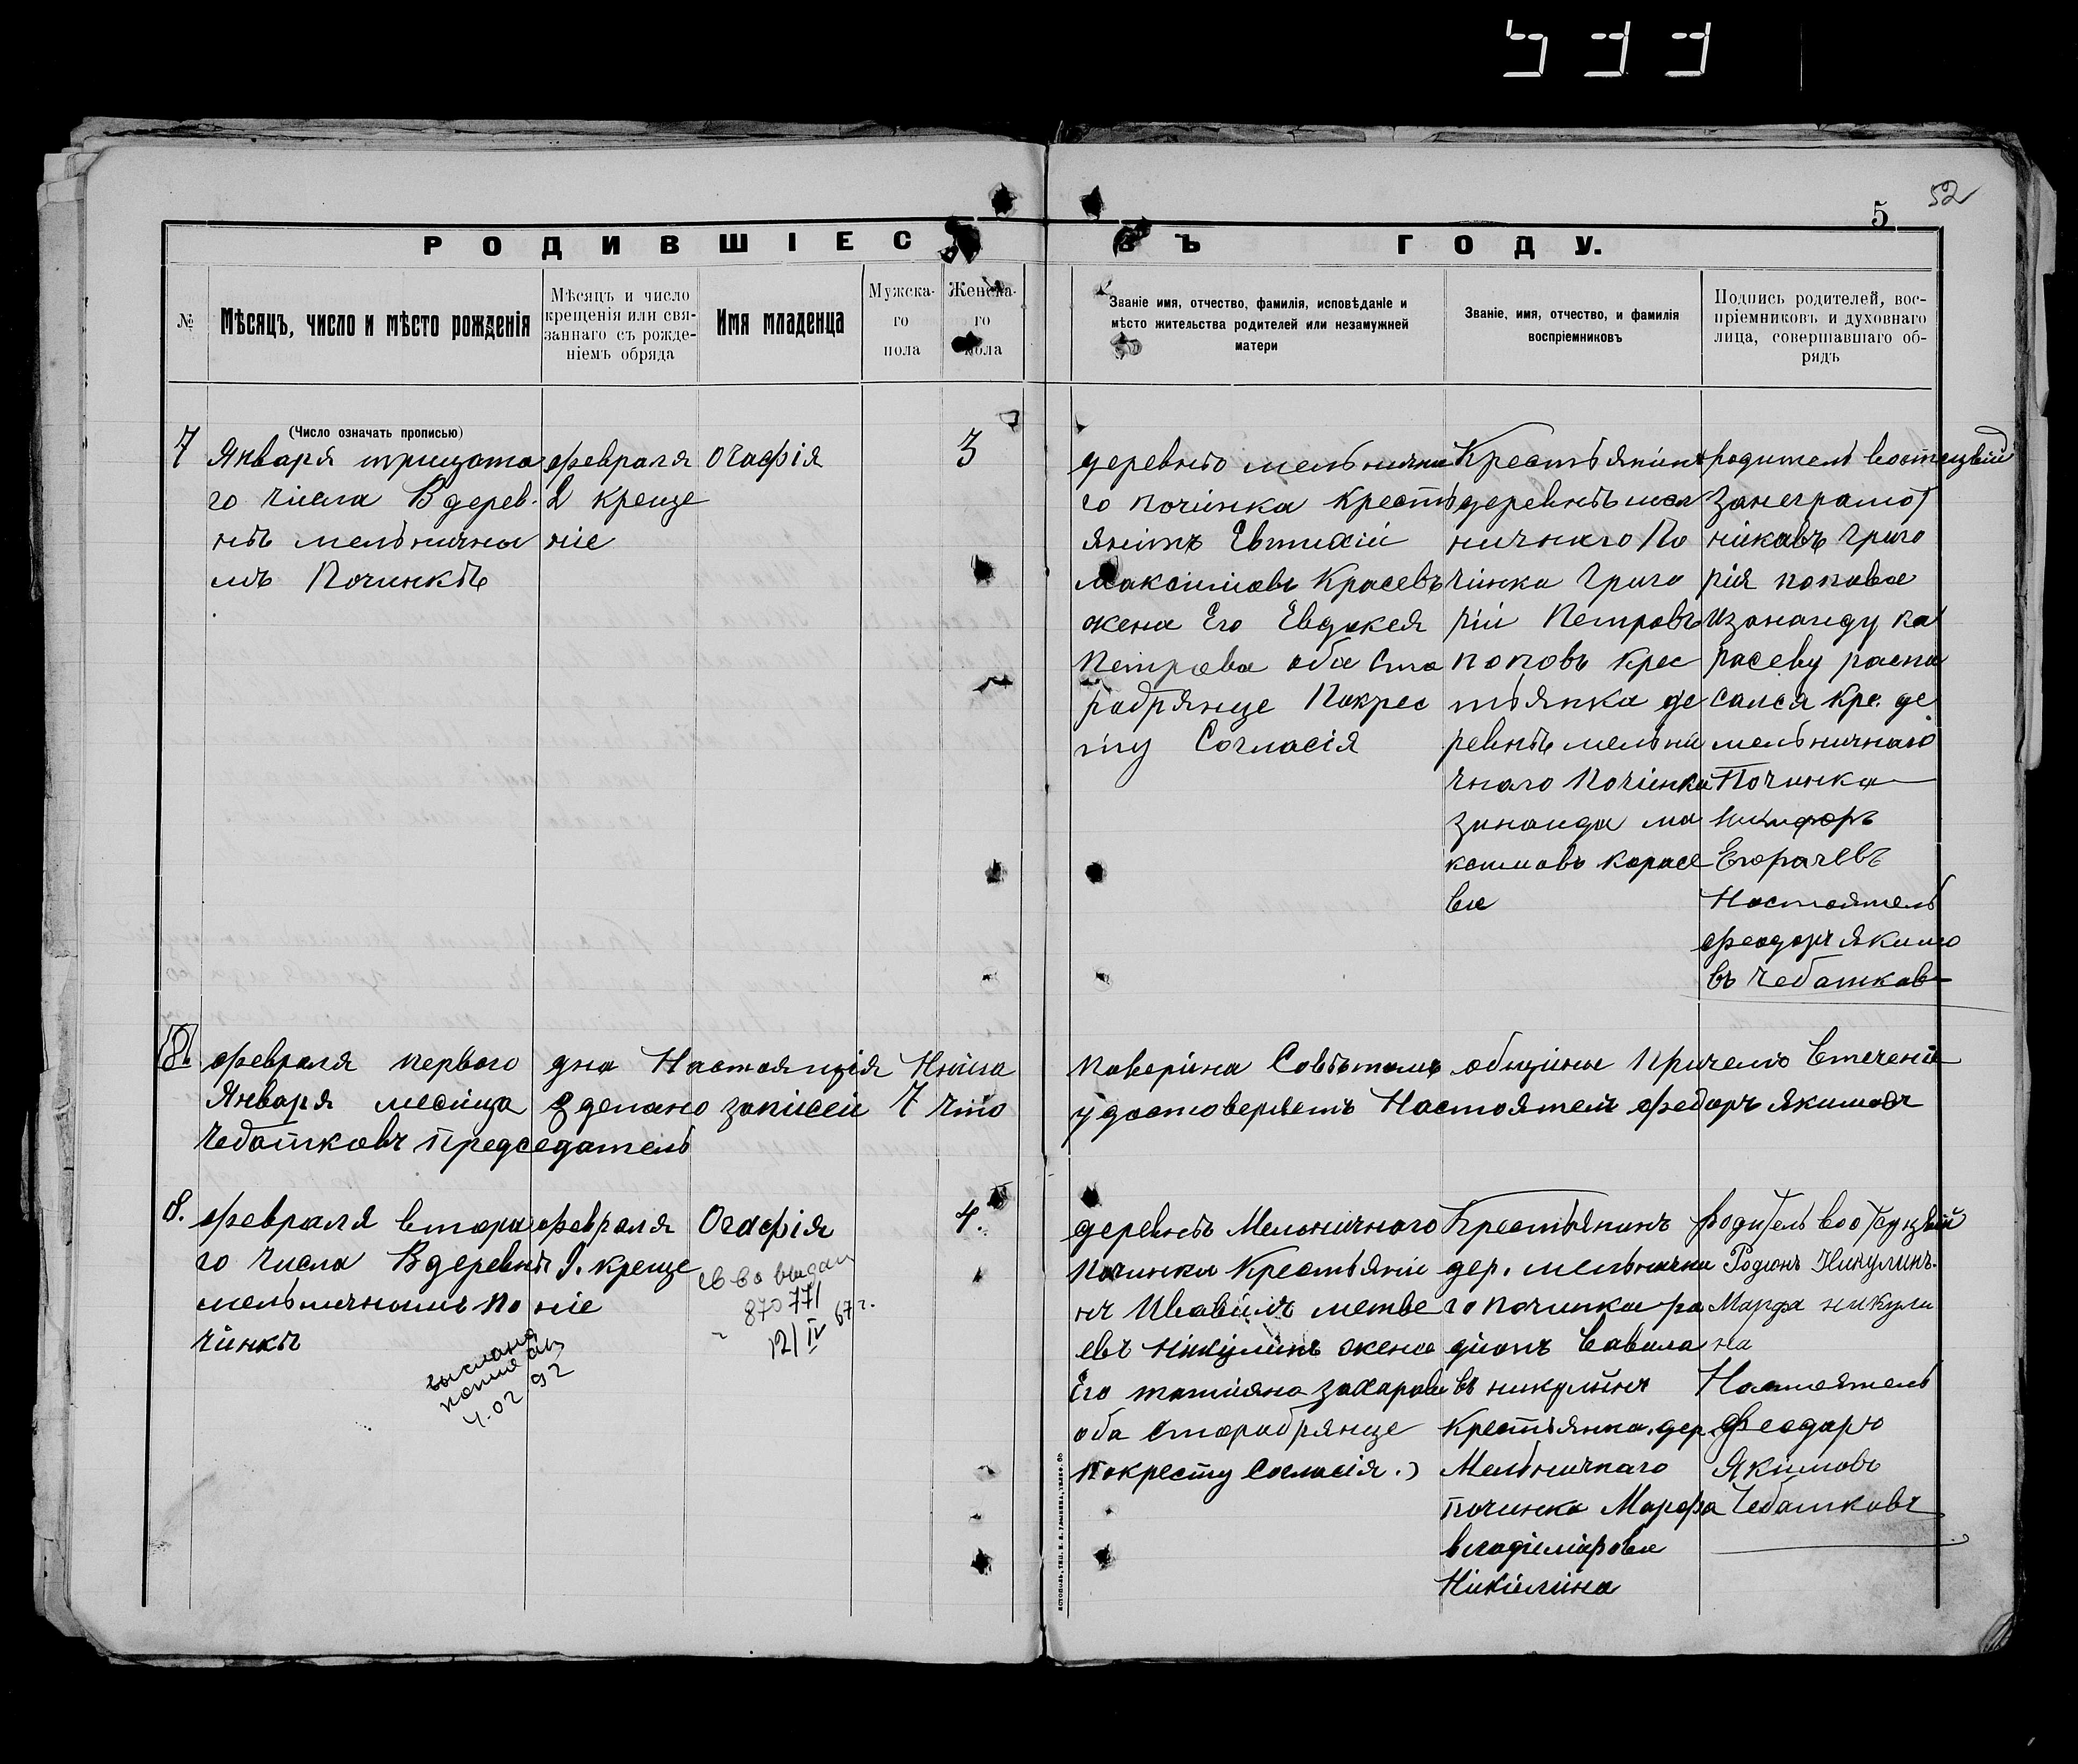 533
52
5
РОДИВШІЕС ВЪ ГОДУ.
№
Мѣсяцъ, число и мѣсто рожденія
Мѣсяцъ и число
крещенія или свя-
заннаго съ рожде-
ніемъ обряда
Имя младенца
Мужска-
го
пола
Женска-
го
пола
Званіе имя, отчество, фамилія, исповѣданіе и
мѣсто жительства родителей или незамужней
матери
Званіе, имя, отчество, и фамилія
воспріемниковъ
Подпись родителей, вос-
пріемниковъ и духовнаго
лица, совершавшаго об-
рядъ
(Число означать прописью)
7
Января трицата
го числа В дерев-
нѣ мельнична
мъ Починкѣ
февраля
2 креще
ніе
Огафія
3
деревнѣ мельнична
го починка Кресть
янинъ Евтихій
Максимовъ Красевъ
жена Его Евдокея
Петрова оба Ста
робрянце Покрес
ту Согласія
Крестьянинъ
деревнѣ мел
ничнаго По
чинка Григо
рій Петровъ
поповъ Крес
тьянка де
ревнѣ мельни
чнаго Починка
зинаида ма
ксимовъ карасе
ва
родитель
Занеграмот
никавъ Григо
рія попова
Изанаиду ка
расеву распи
салса Кре. де
мельничнаго
Починка
Никифоръ
Настоятель
Феодоръ Якимо
въ Чебатков
февраля перваго дна Настоящія Книга поверіна Совѣтомъ общины Причемъ Втеченіе
Января месяца зделано записей 7 что удостоверяетъ Настоятель Федоръ Якимовъ
Чебатковъ Председатель
8.
февраля втора
го числа В деревнѣ
мельничномъ по
чинкѣ
февраля
9. креще
ніе
Огафія
4.
св-во выдан
870771
12/IV 67 г.
выслана
4.02.92
деревнѣ Мельничного
Починка Крестьяни
нъ Ивавилъ матве
евъ Никулинъ жена
Его татияна захарова
оба Старобрянце
Покресту Согласія.
Крестьянинъ
дер. мельнична
го починка ра
дионъ Вавила
въ никулинъ
Крестьянка дер.
Мельничнаго
починка Марфа
владиміровна
Никулина
Родитель
Родіонъ Никулинъ.
Марфа никули
на
Настоятель
Феодаръ
Якимовъ
Чебатковъ